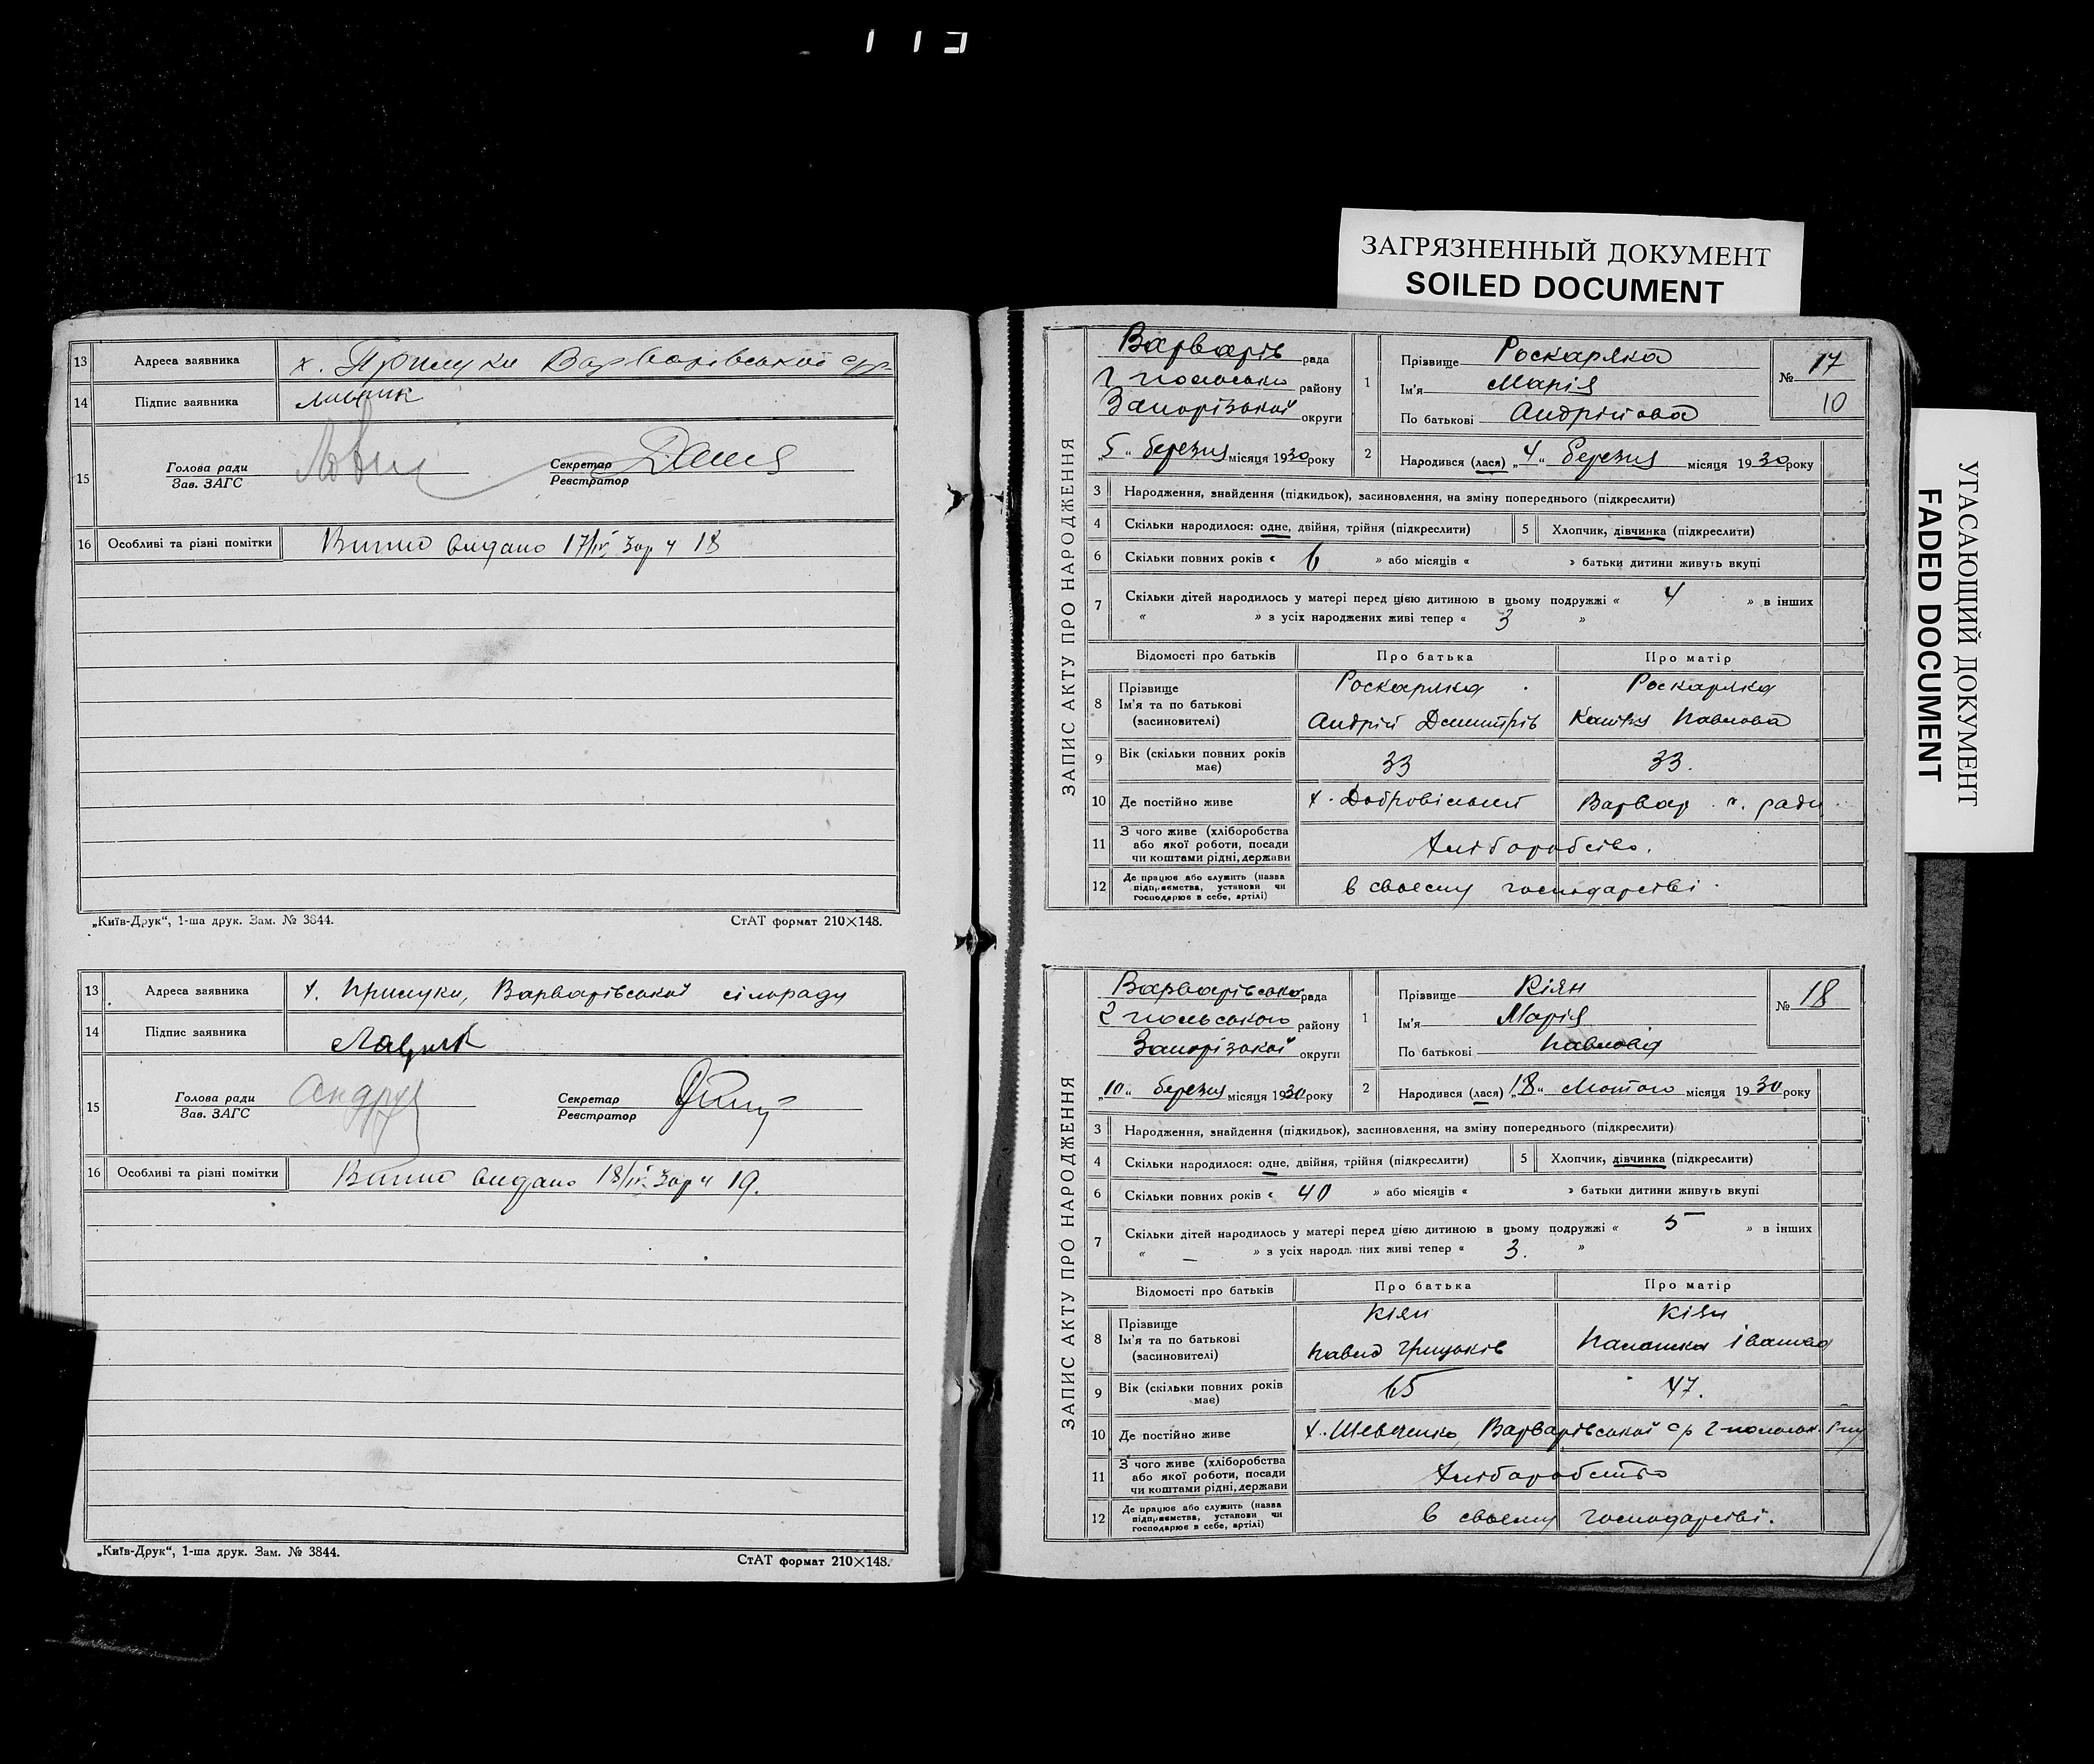 113
ЗАГРЯЗНЕННЫЙ ДОКУМЕНТ
SOILED DOCUMENT
УГАСАЮЩИЙ ДОКУМЕНТ
FADED DOCUMENT
13 Адреса заявника х. Прилуки Варварівської с/р
14 Підпис заявника
15 Голова ради Секретар
Зав. ЗАГС Реєстратор
16 Особливі та різні помітки видано 17/IV Зар ч 18
„Київ-Друк“, 1-ша друк. Зам. № 3844. СтАТ формат 210×148.
13 Адреса заявника х. Прилуки, Варварівської сільради
14 Підпис заявника
15 Голова ради Секретар
Зав. ЗАГС Реєстратор
16 Особливі та різні помітки видано 18/IV Зар ч 19.
„Київ-Друк“, 1-ша друк. Зам. № 3844. СтАТ формат 210×148.
ЗАПИС АКТУ ПРО НАРОДЖЕННЯ
Варварів рада
району
Запорізької округи
„5“ березня місяця 1930 року
1 Прізвище Роскаряка
Ім'я Марія
По батькові Андрійова
№ 17
10
2 Народився (лася) „4“ березня місяця 1930 року
3 Народження, знайдення (підкидьок), засиновлення, на зміну попереднього (підкреслити)
4 Скільки народилося: одне, двійня, трійня (підкреслити) 5 Хлопчик, дівчинка (підкреслити)
6 Скільки повних років « 6 » або місяців « » батьки дитини живуть вкупі
7 Скільки дітей народилось у матері перед цією дитиною в цьому подружжі « 4 » в інших
« » з усіх народжених живі тепер « 3 »
Відомості про батьків Про батька Про матір
8 Прізвище Роскаряка Роскаряка
Ім'я та по батькові
(засновителі) Андрій Демитрів Павлова
9 Вік (скільки повних років має) 33 33.
10 Де постійно живе х. Варвар. ради
11 З чого живе (хліборобства
або якої роботи, посади
чи коштами рідні, держави Хліборобство.
12 Де працює або служить (назва
підприємства, установи чи
господарює в себе, артілі) в своєму господарстві.
ЗАПИС АКТУ ПРО НАРОДЖЕННЯ
Варварівська рада
району
Запорізької округи
„10“ березня місяця 1930 року
1 Прізвище Кіян
Ім'я Марія
По батькові Павлова
№ 18
2 Народився (лася) „18“ Лютого місяця 1930 року
3 Народження, знайдення (підкидьок), засиновлення, на зміну попереднього (підкреслити)
4 Скільки народилося: одне, двійня, трійня (підкреслити) 5 Хлопчик, дівчинка (підкреслити)
6 Скільки повних років « 40 » або місяців « » батьки дитини живуть вкупі
7 Скільки дітей народилось у матері перед цією дитиною в цьому подружжі « 5 » в інших
« — » з усіх народжених живі тепер « 3. »
Відомості про батьків Про батька Про матір
8 Прізвище Кіян Кіян
Ім'я та по батькові
(засновителі) Павло Грицьків Палашка Іванова
9 Вік (скільки повних років має) 65 47.
10 Де постійно живе х. Шевченко, Варварівської с/р
11 З чого живе (хліборобства
або якої роботи, посади
чи коштами рідні, держави Хліборобство
12 Де працює або служить (назва
підприємства, установи чи
господарює в себе, артілі) в своєму господарстві.